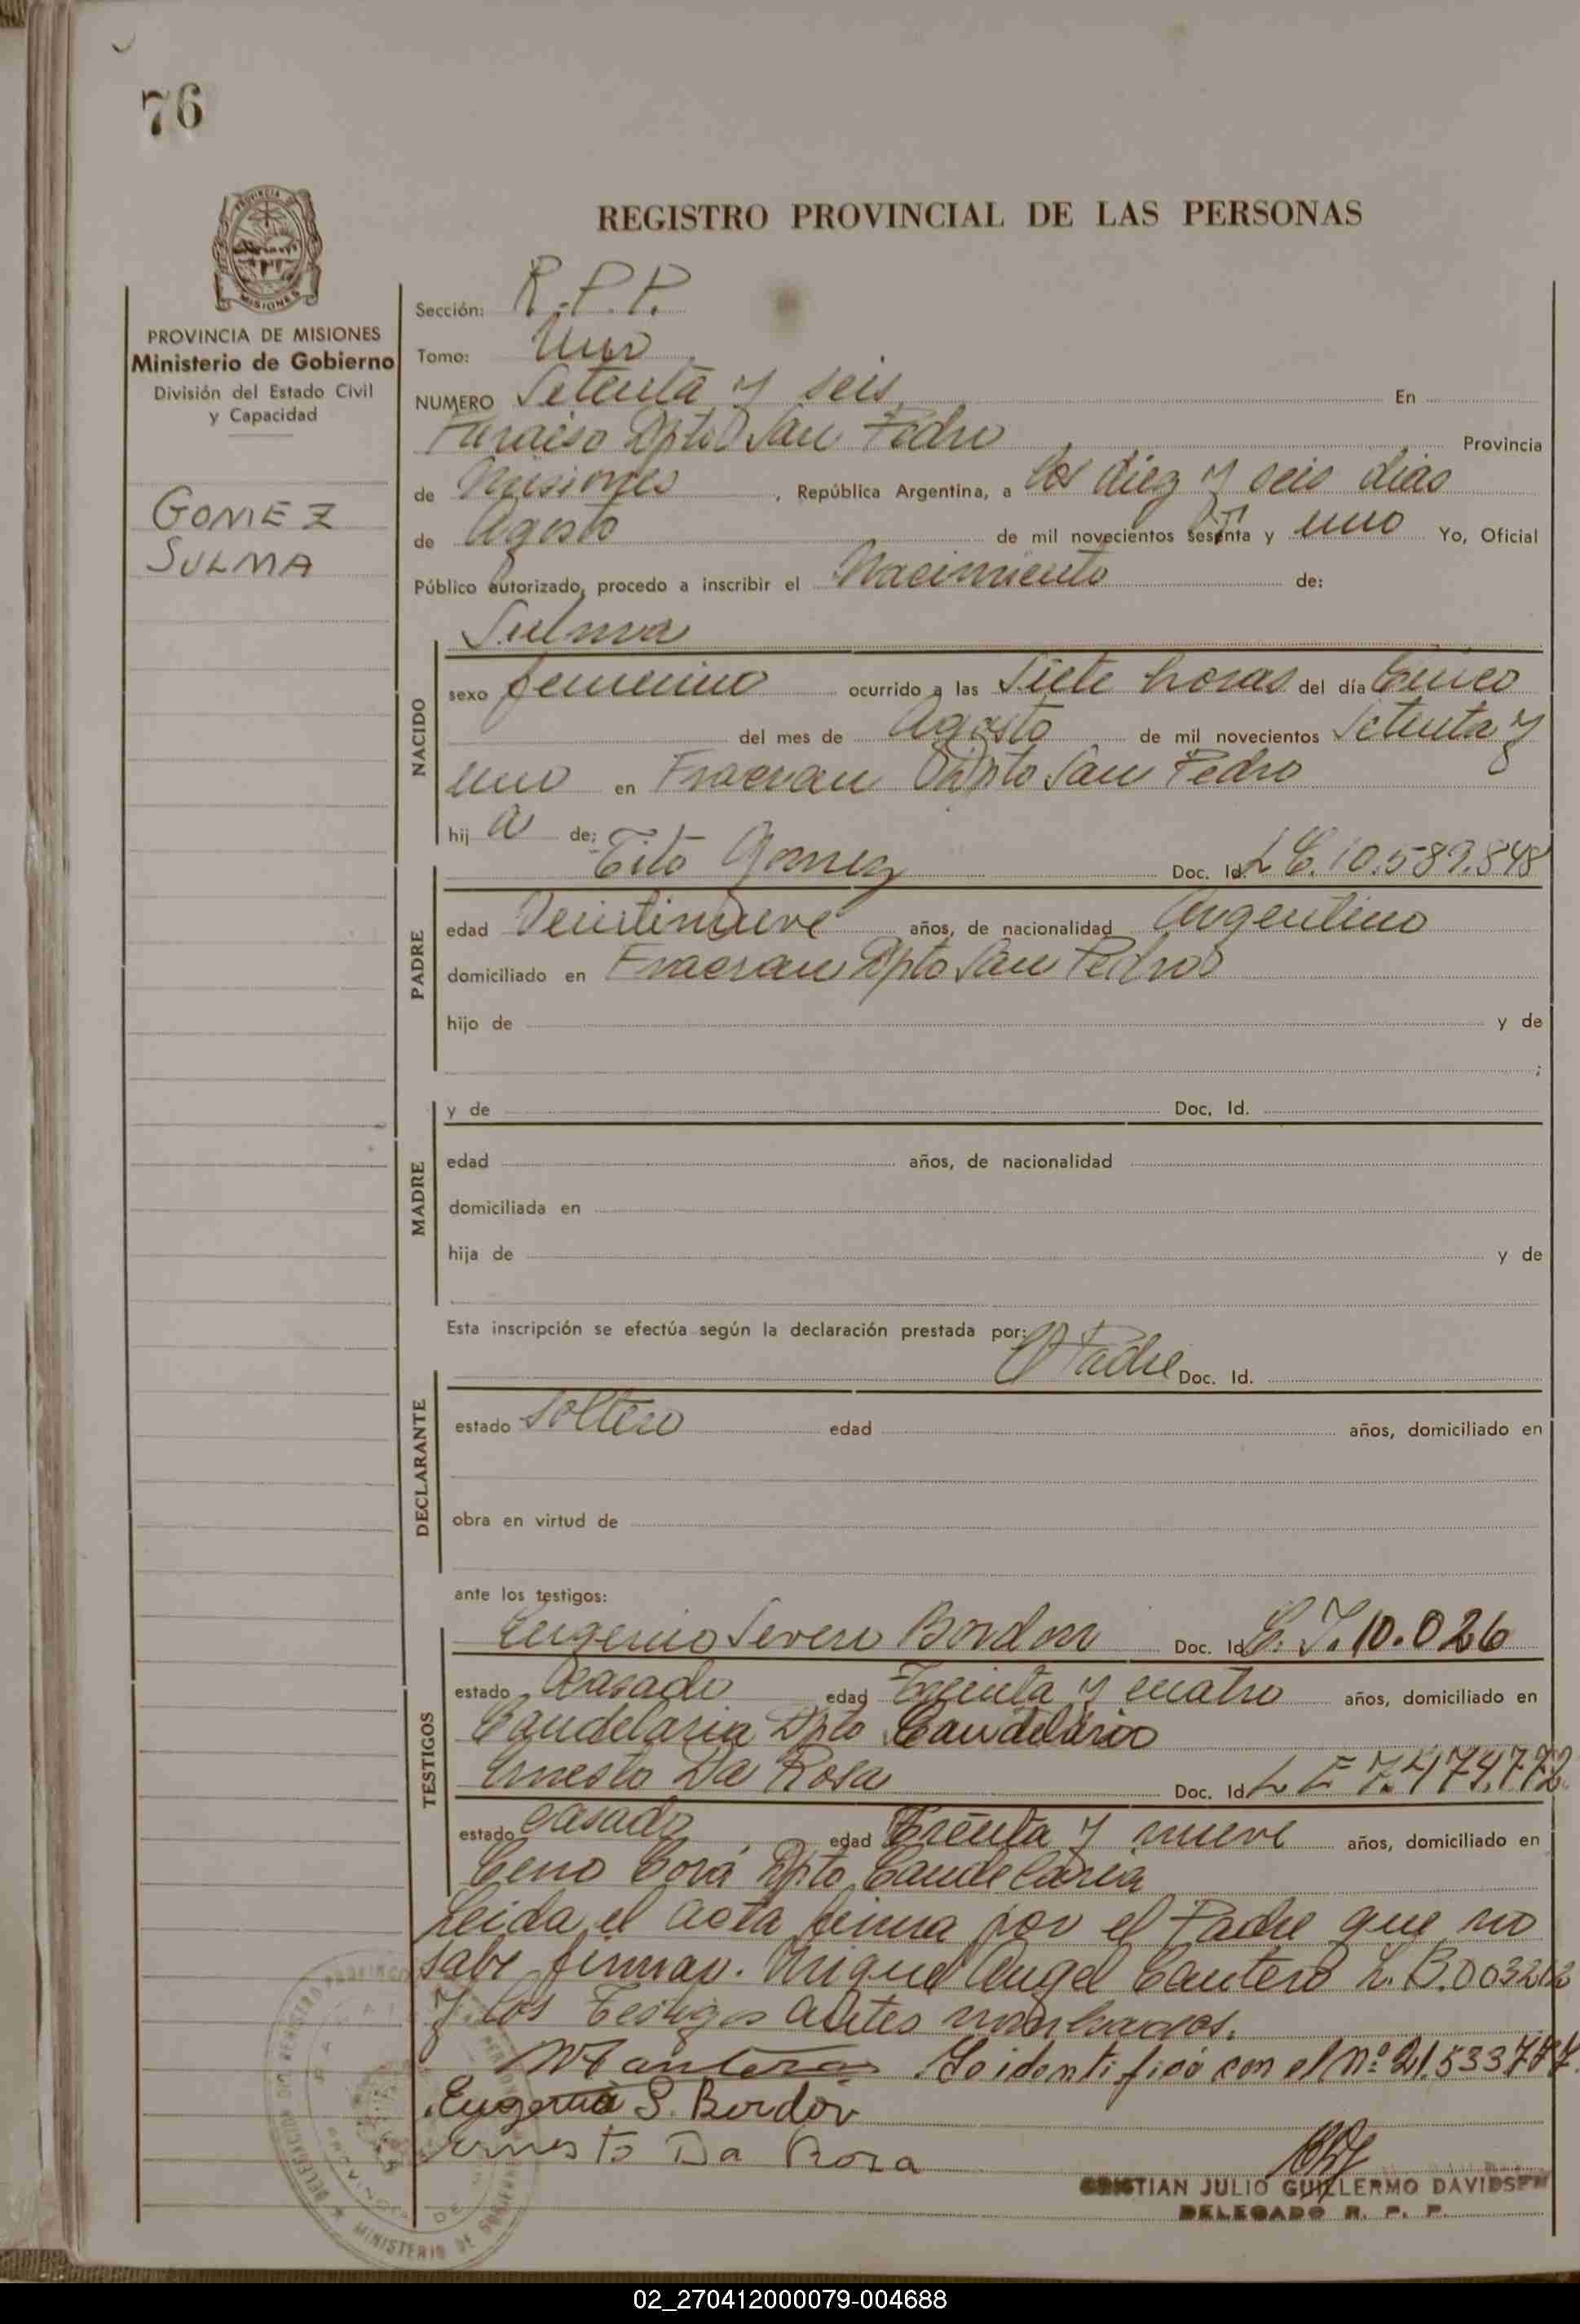 76
PROVINCIA DE MISIONES
Ministerio de Gobierno
División del Estado Civil
y Capacidad
GOMEZ
SULMA
REGISTRO PROVINCIAL DE LAS PERSONAS
Sección: R.P.P.
Tomo: Uno
NUMERO Setenta y seis En
Paraiso Dpto San Pedro Provincia
de Misiones, República Argentina, a los diez y seis dias
de Agosto de mil novecientos setenta y uno Yo, Oficial
Público autorizado, procedo a inscribir el Nacimiento de:
Sulma
NACIDO
sexo femenino ocurrido a las Siete horas del día Cinco
del mes de Agosto de mil novecientos Setenta y
uno en Fracran Dpto San Pedro
hij a de:
Tito Gomez Doc. Id.
PADRE
edad Veintinueve años, de nacionalidad Argentino
domiciliado en Fracran Dpto San Pedro
hijo de y de
;
MADRE
y de Doc. Id.
edad años, de nacionalidad
domiciliada en
hija de y de
Esta inscripción se efectúa según la declaración prestada por:
DECLARANTE
El Padre Doc. Id.
estado Soltero edad años, domiciliado en
obra en virtud de
ante los testigos:
TESTIGOS
Eugenio Severo Bordon Doc. Id. C.I. 10.026
estado Casado edad Treinta y cuatro años, domiciliado en
Candelaria Dpto Candelaria
Ernesto Da Rosa Doc. Id. L E 7.474.772
estado Casado edad Treinta y nueve años, domiciliado en
Cerro Corá Dpto Candelaria
Leida el acta firma por el Padre que no
sabe firmar. Miguel Angel Cantero
y los Testigos antes nombrados.
Se identificó con el Nº
Eugenio S. Bordón
Ernesto Da Rosa
CRISTIAN JULIO GUILLERMO DAVIDSEN
DELEGADO R. P. P.
MINISTERIO DE GOBIERNO
02_270412000079-004688